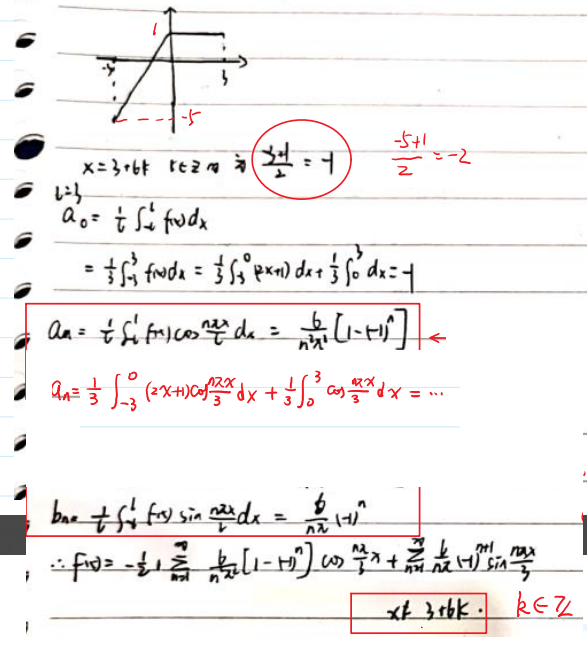 1
-3 3
-5
x=3+6k k∈Z 时 为 \frac{-3+1}{2} = -1 \frac{-5+1}{2} = -2
l=3
a_0 = \frac{1}{l} ∫_{-l}^{l} f(x)dx
= \frac{1}{3} ∫_{-3}^{3} f(x)dx = \frac{1}{3} ∫_{-3}^{0} (2x+1) dx + \frac{1}{3} ∫_{0}^{3} dx = -1
a_n = \frac{1}{l} ∫_{-l}^{l} f(x) cos \frac{nπx}{l} dx = \frac{6}{n^2π^2} [1-(-1)^n] ←
a_n = \frac{1}{3} ∫_{-3}^{0} (2x+1) cos \frac{nπx}{3} dx + \frac{1}{3} ∫_{0}^{3} cos \frac{nπx}{3} dx = ...
b_n = \frac{1}{l} ∫_{-l}^{l} f(x) sin \frac{nπx}{l} dx = \frac{6}{nπ} (-1)^n
∴ f(x) = -\frac{1}{2} + ∑_{n=1}^{∞} \frac{6}{n^2π^2} [1-(-1)^n] cos \frac{nπ}{3} x + ∑_{n=1}^{∞} \frac{6}{nπ} (-1)^{n+1} sin \frac{nπx}{3}
x≠ 3+6k. k∈Z